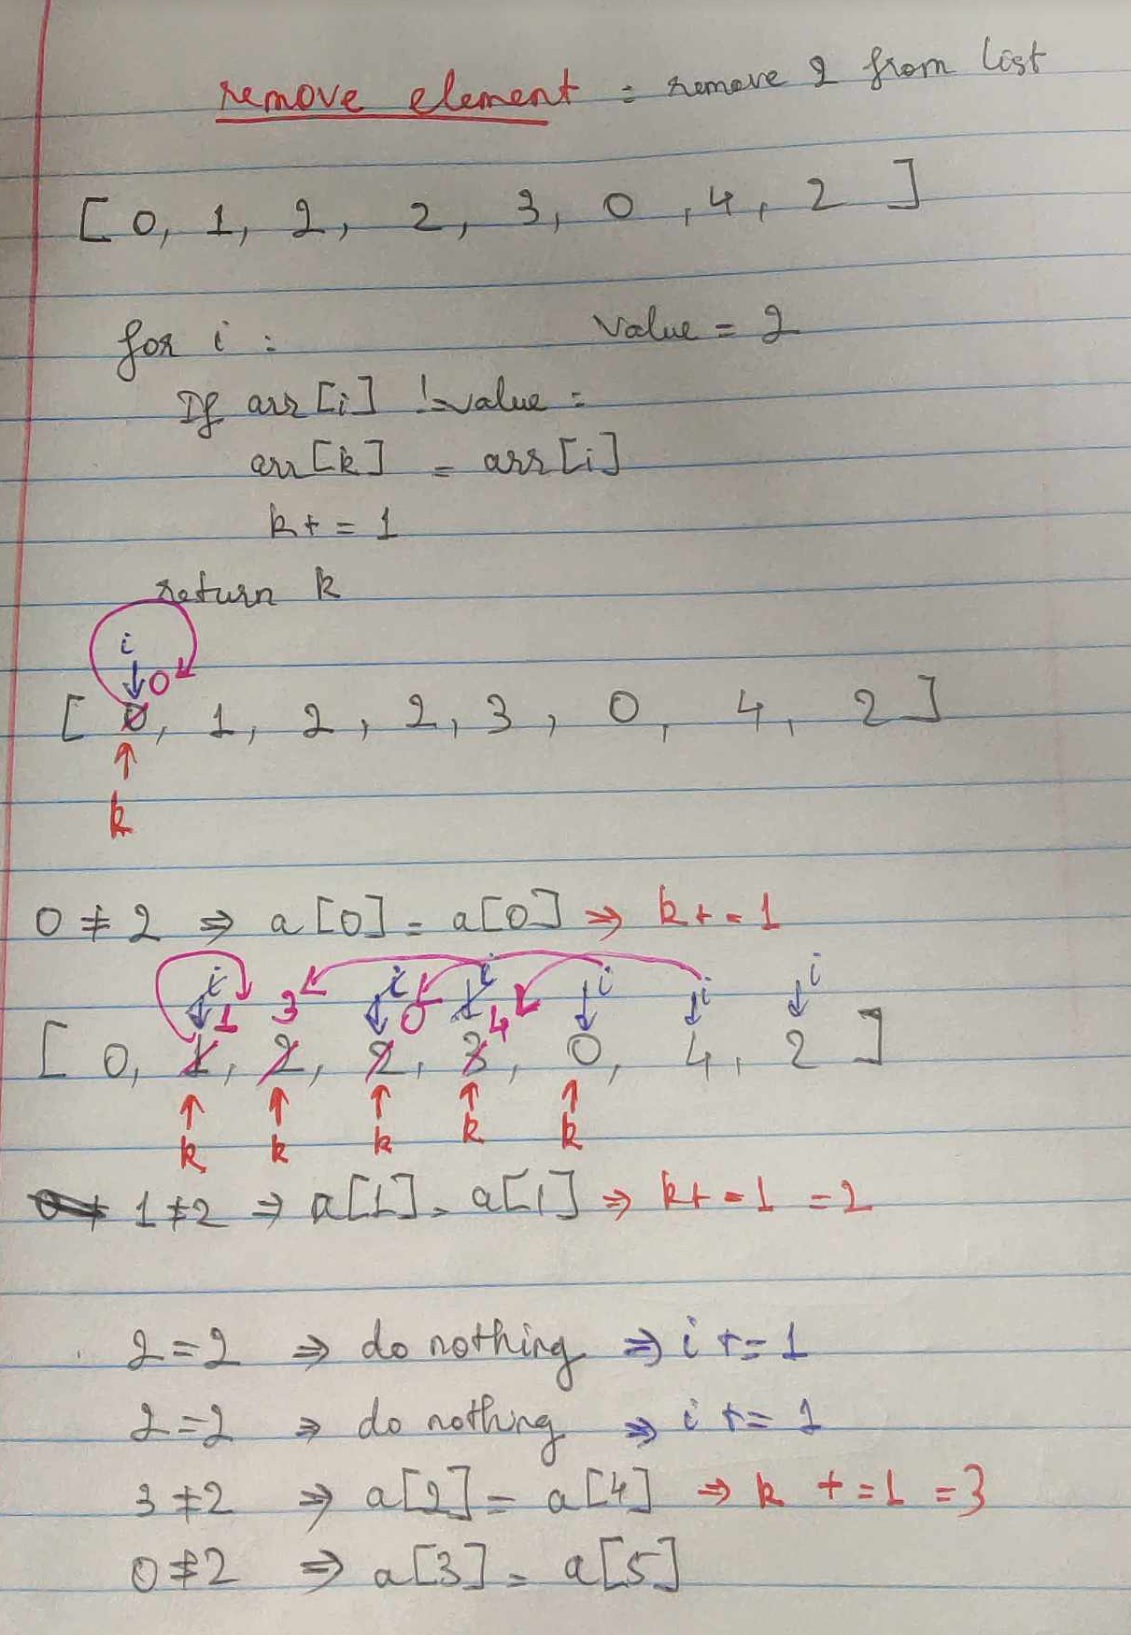 remove element : remove 2 from list
[ 0, 1, 2, 2, 3, 0, 4, 2 ]
for i : value = 2
If arr[i] != value :
arr[k] = arr[i]
k+=1
return k
i
0
[ 0, 1, 2, 2, 3, 0, 4, 2 ]
k
0 ≠ 2 ⇒ a[0] = a[0] ⇒ k+=1
i i i i i i
1 3 0 4
[ 0, 1, 2, 2, 3, 0, 4, 2 ]
k k k k k
1≠2 ⇒ a[1] = a[1] ⇒ k+=1 = 2
2=2 ⇒ do nothing ⇒ i+=1
2=2 ⇒ do nothing ⇒ i+=1
3≠2 ⇒ a[2] = a[4] ⇒ k+=1 = 3
0≠2 ⇒ a[3] = a[5]